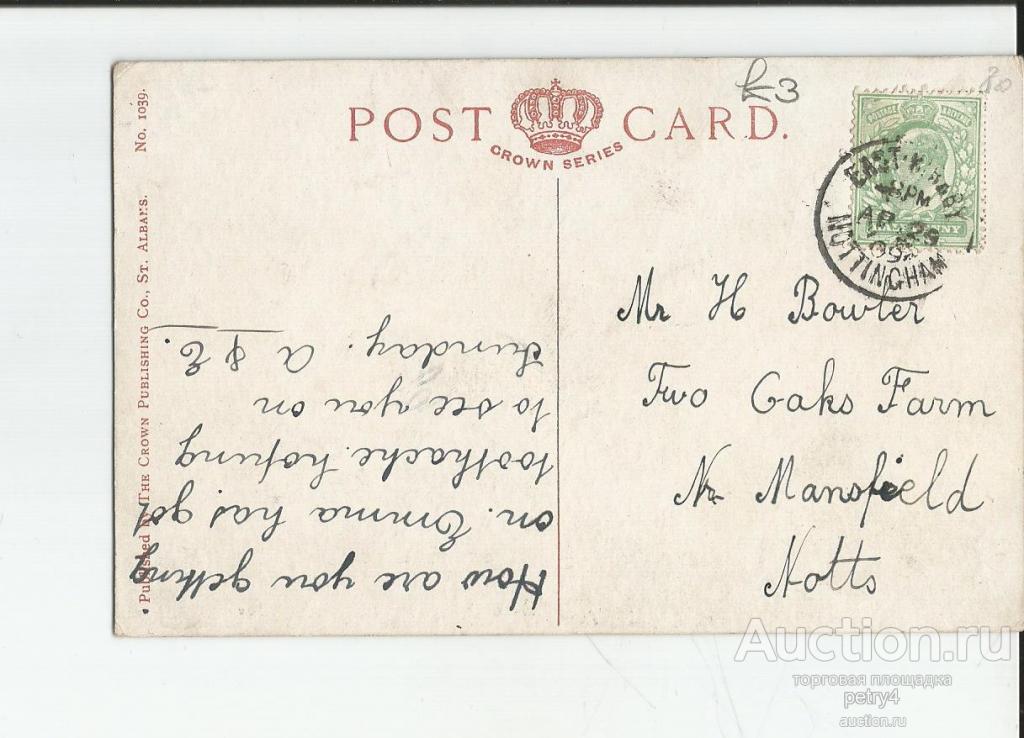 POST CARD.
CROWN SERIES
k3
30
EAST KIRKBY
8 PM
AP 29
09
NOTTINGHAM
Mr H Bowler
Two Oaks Farm
Nr Mansfield
Notts
How are you getting
on. Emma has got
toothache. hoping
to see you on
Sunday. A & E.
Published by The Crown Publishing Co., St. Albans. No. 1039.
Auction.ru
торговая площадка
petry4
auction.ru